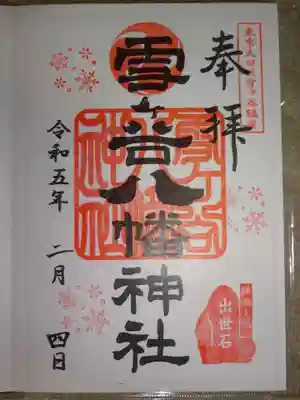 奉拝
雪ヶ谷八幡神社
令和五年 二月 四日
出世石